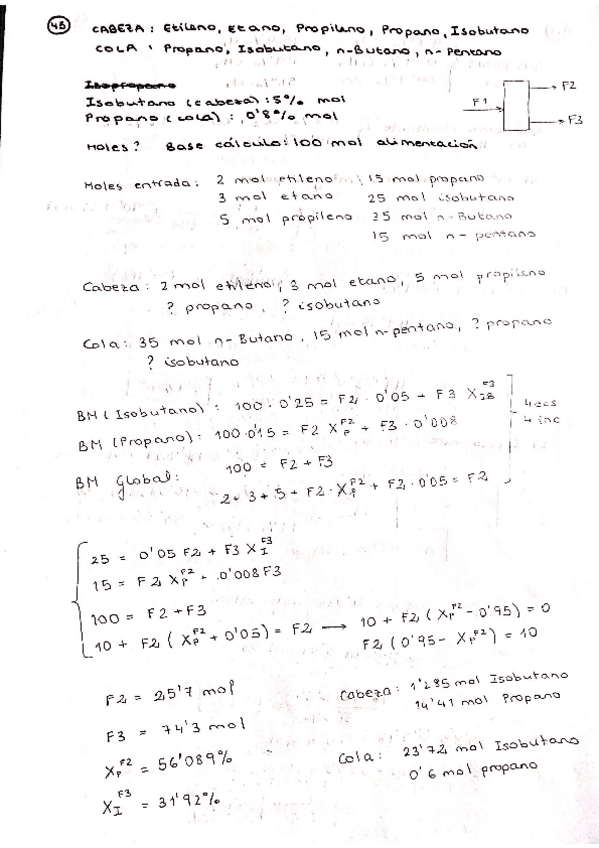 45 CABEZA : Etileno, Etano, Propileno, Propano, Isobutano
COLA : Propano, Isobutano, n-Butano, n-Pentano
Isopropano
Isobutano (cabeza) : 5% mol
Propano (cola) : 0'8% mol
F1 F2
F3
Moles? Base cálculo: 100 mol alimentación
Moles entrada: 2 mol etileno ; 15 mol propano
3 mol etano 25 mol isobutano
5 mol propileno 35 mol n-Butano
15 mol n-pentano
Cabeza : 2 mol etileno, 3 mol etano, 5 mol propileno
? propano, ? isobutano
Cola: 35 mol n-Butano, 15 mol n-pentano, ? propano
? isobutano
BM (Isobutano) : 100 · 0'25 = F2 · 0'05 + F3 X_IB^F3
BM (Propano): 100·0'15 = F2 X_P^F2 + F3 · 0'008
4 ecs
4 inc
BM Global: 100 = F2 + F3
2 + 3 + 5 + F2 · X_P^F2 + F2 · 0'05 = F2
25 = 0'05 F2 + F3 X_I^F3
15 = F2 X_P^F2 + 0'008 F3
100 = F2 + F3
10 + F2 ( X_P^F2 + 0'05) = F2 → 10 + F2 ( X_P^F2 - 0'95) = 0
F2 ( 0'95 - X_P^F2) = 10
F2 = 25'7 mol
F3 = 74'3 mol
X_P^F2 = 56'089%
X_I^F3 = 31'92%
Cabeza : 1'285 mol Isobutano
14'41 mol Propano
Cola : 23'72 mol Isobutano
0'6 mol propano